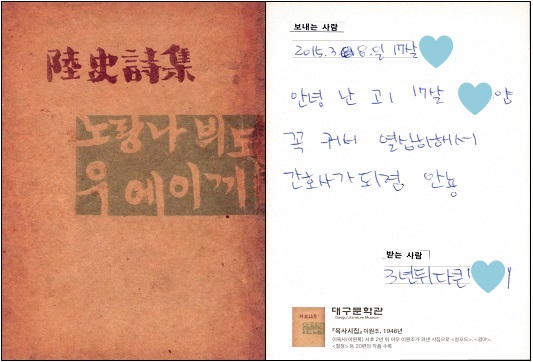 陸史詩集
노랑나븨도
우에이끼
보내는 사람
2015.3 8.일 17날
안녕 난 고1 17날 양
꼭 커비 열심히해서
간호사가되렴 안뇽
받는 사람
3년뒤다큰
대구문학관
Daegu Literature Museum
『육사시집』이원조, 1946년
이육사(이원록) 사후 2년 뒤 아우 이원조가 펴낸 시집으로 <청포도>, <광야>,
<절정> 등 20편의 작품 수록